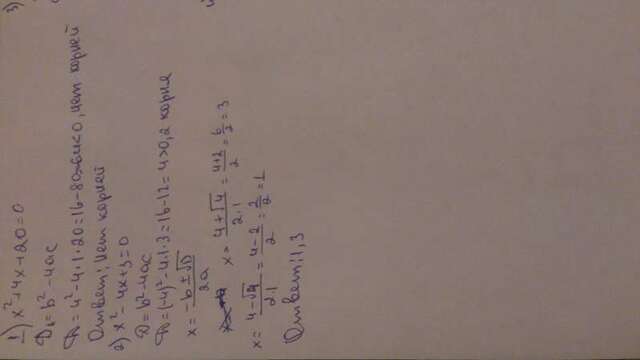 1) x²+4x+20=0
D=b²-4ac
D=4²-4·1·20=16-80=-64<0, нет корней
Ответ: нет корней
2) x²-4x+3=0
D=b²-4ac
D=(-4)²-4·1·3=16-12=4>0, 2 корня
x=\frac{-b±√D}{2a}
x=\frac{4+√4}{2·1}=\frac{4+2}{2}=\frac{6}{2}=3
x=\frac{4-√4}{2·1}=\frac{4-2}{2}=\frac{2}{2}=1
Ответ: 1, 3
3)